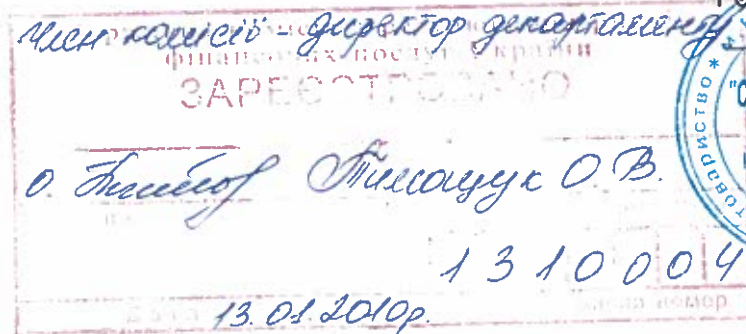 Член комісії - директор департаменту
фінансових послуг України
ЗАРЕЄСТРОВАНО
Тимощук О.В.
1310004
номер
13.01.2010р.
товариство *